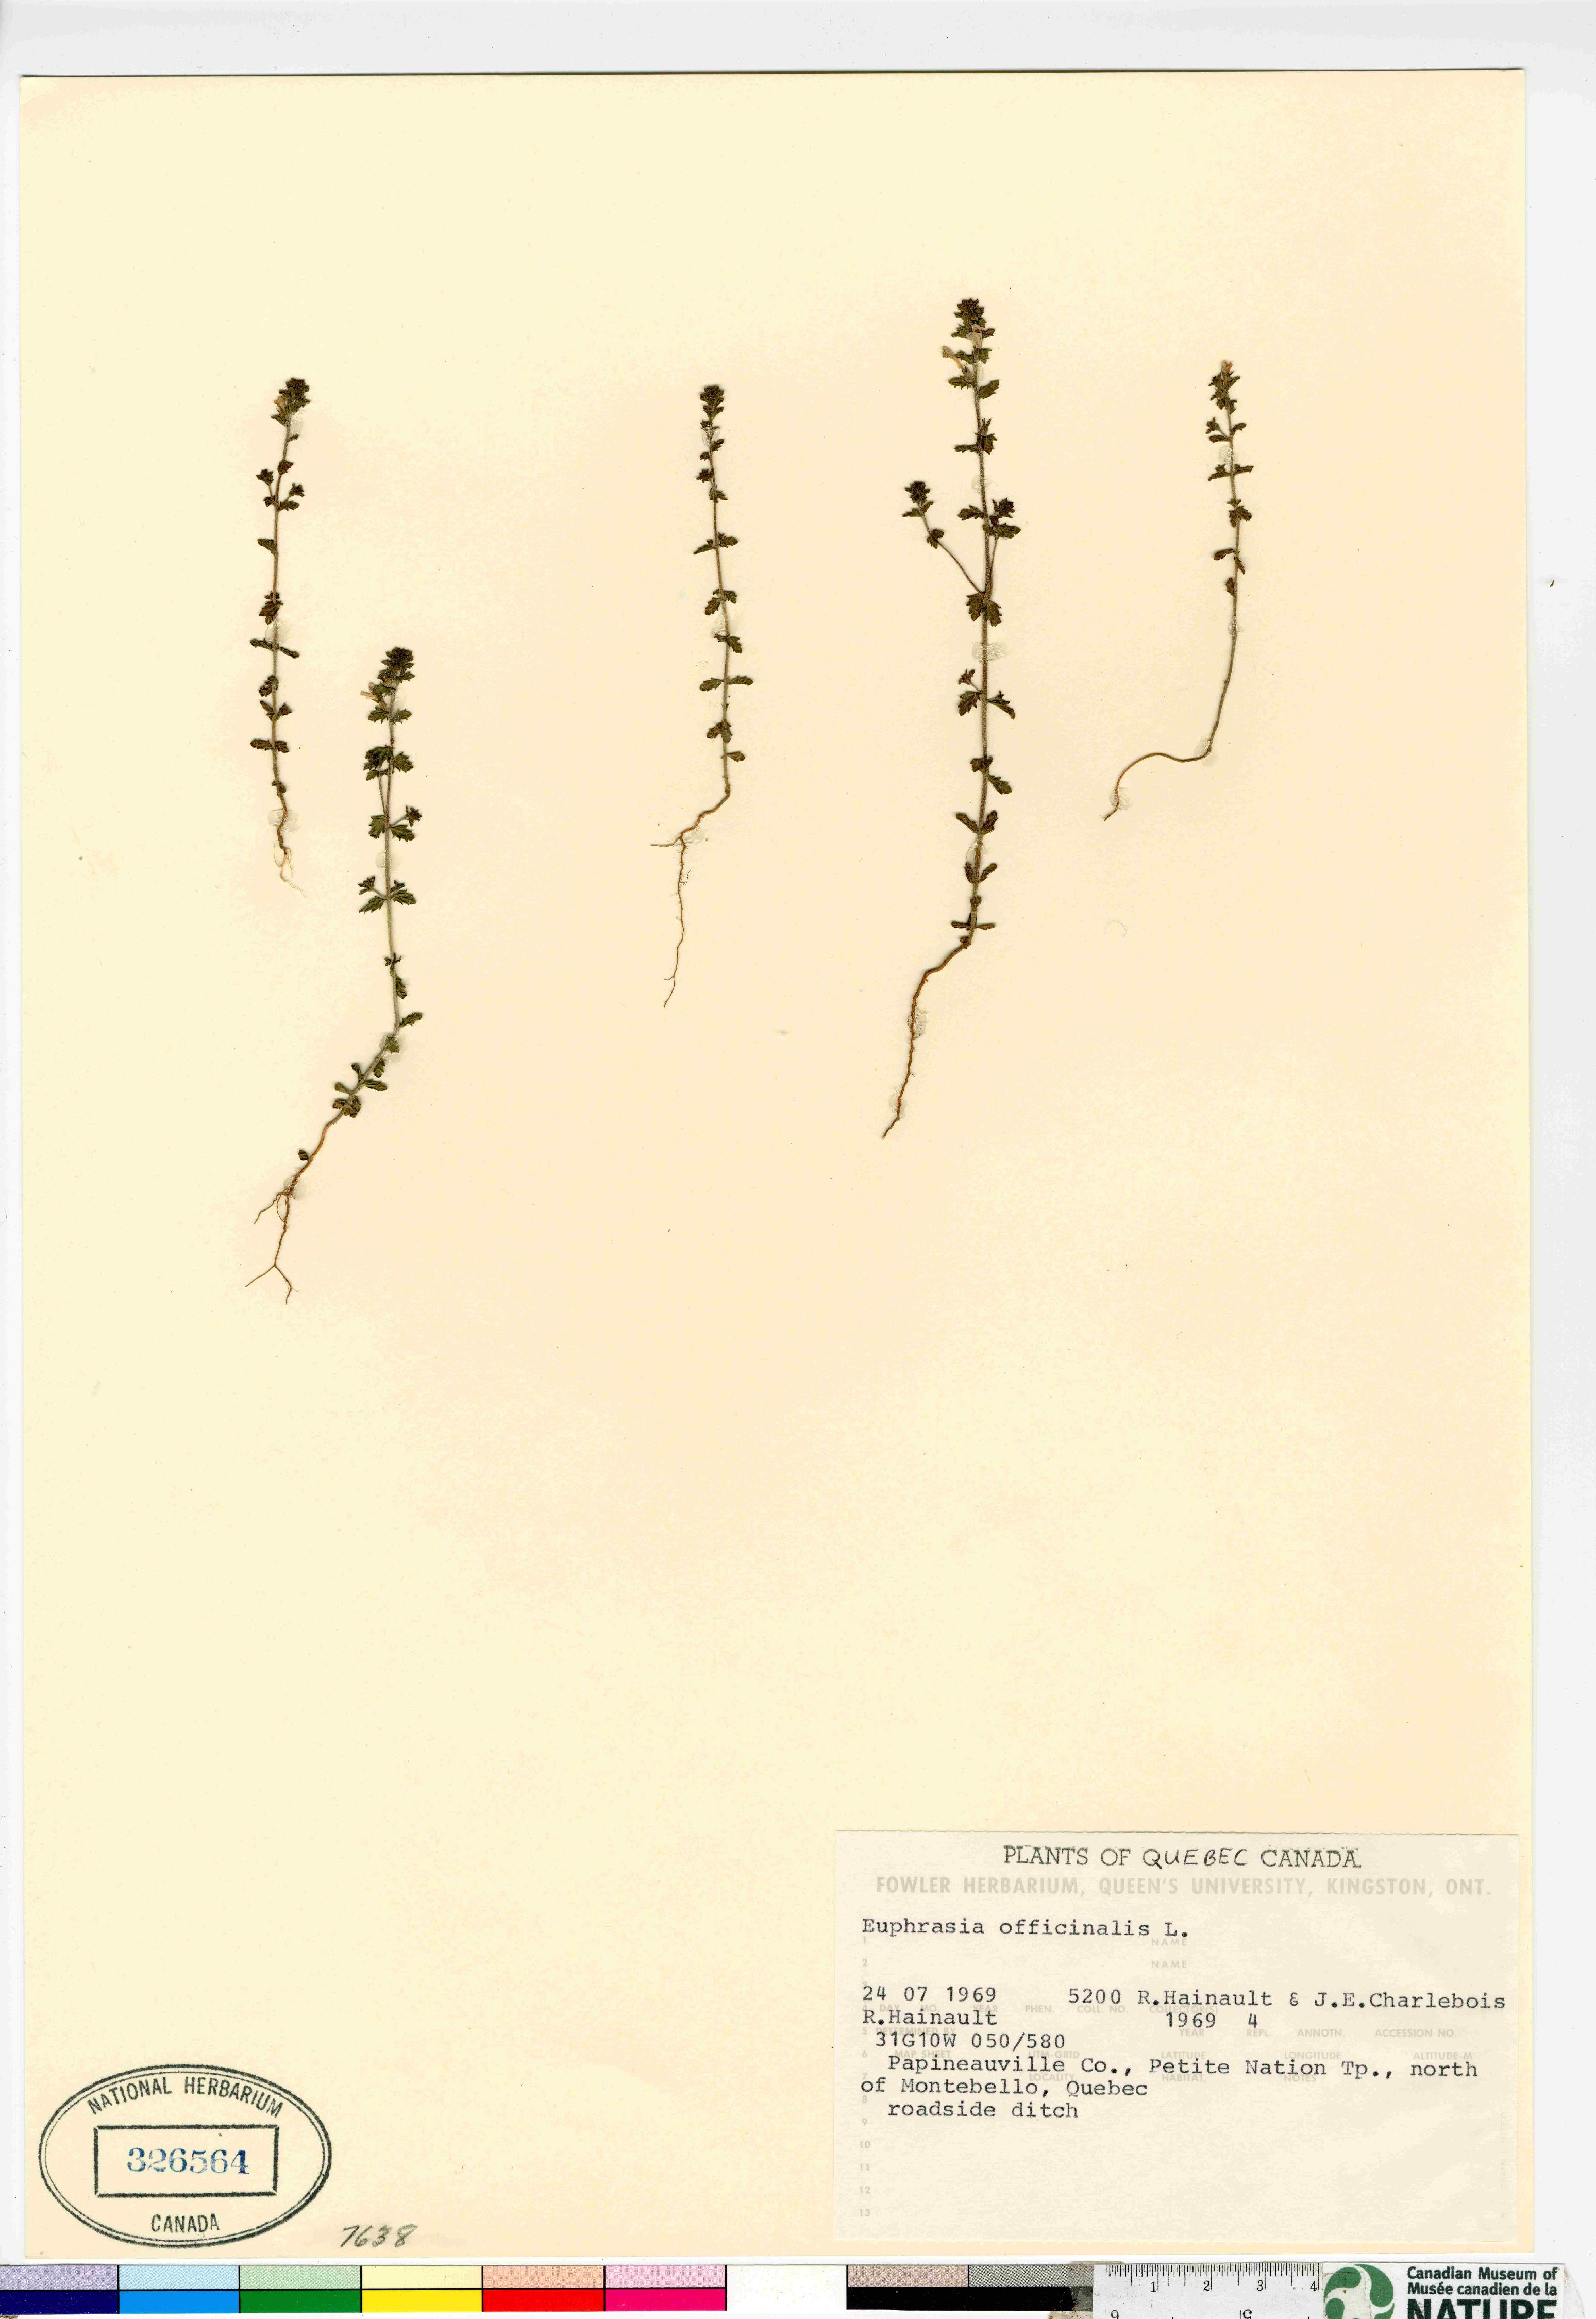 PLANTS OF QUEBEC CANADA
FOWLER HERBARIUM, QUEEN'S UNIVERSITY, KINGSTON, ONT.
Euphrasia officinalis L.
1 NAME
2 NAME
24 07 1969 5200 R.Hainault & J.E.Charlebois
4 DAY MO. YEAR PHEN. COLL. NO. COLLECTOR(S)
R.Hainault 1969 4
5 DETERMINED BY YEAR REPL. ANNOTN. ACCESSION NO.
31G10W 050/580
6 MAP SHEET UTM-GRID LATITUDE LONGITUDE ALTITUDE-M
Papineauville Co., Petite Nation Tp., north
7 LOCALITY HABITAT NOTES
of Montebello, Quebec
8
roadside ditch
9
10
11
12
13
NATIONAL HERBARIUM
326564
CANADA
7638
1 2 3 4
Canadian Museum of
Musée canadien de la
NATURE